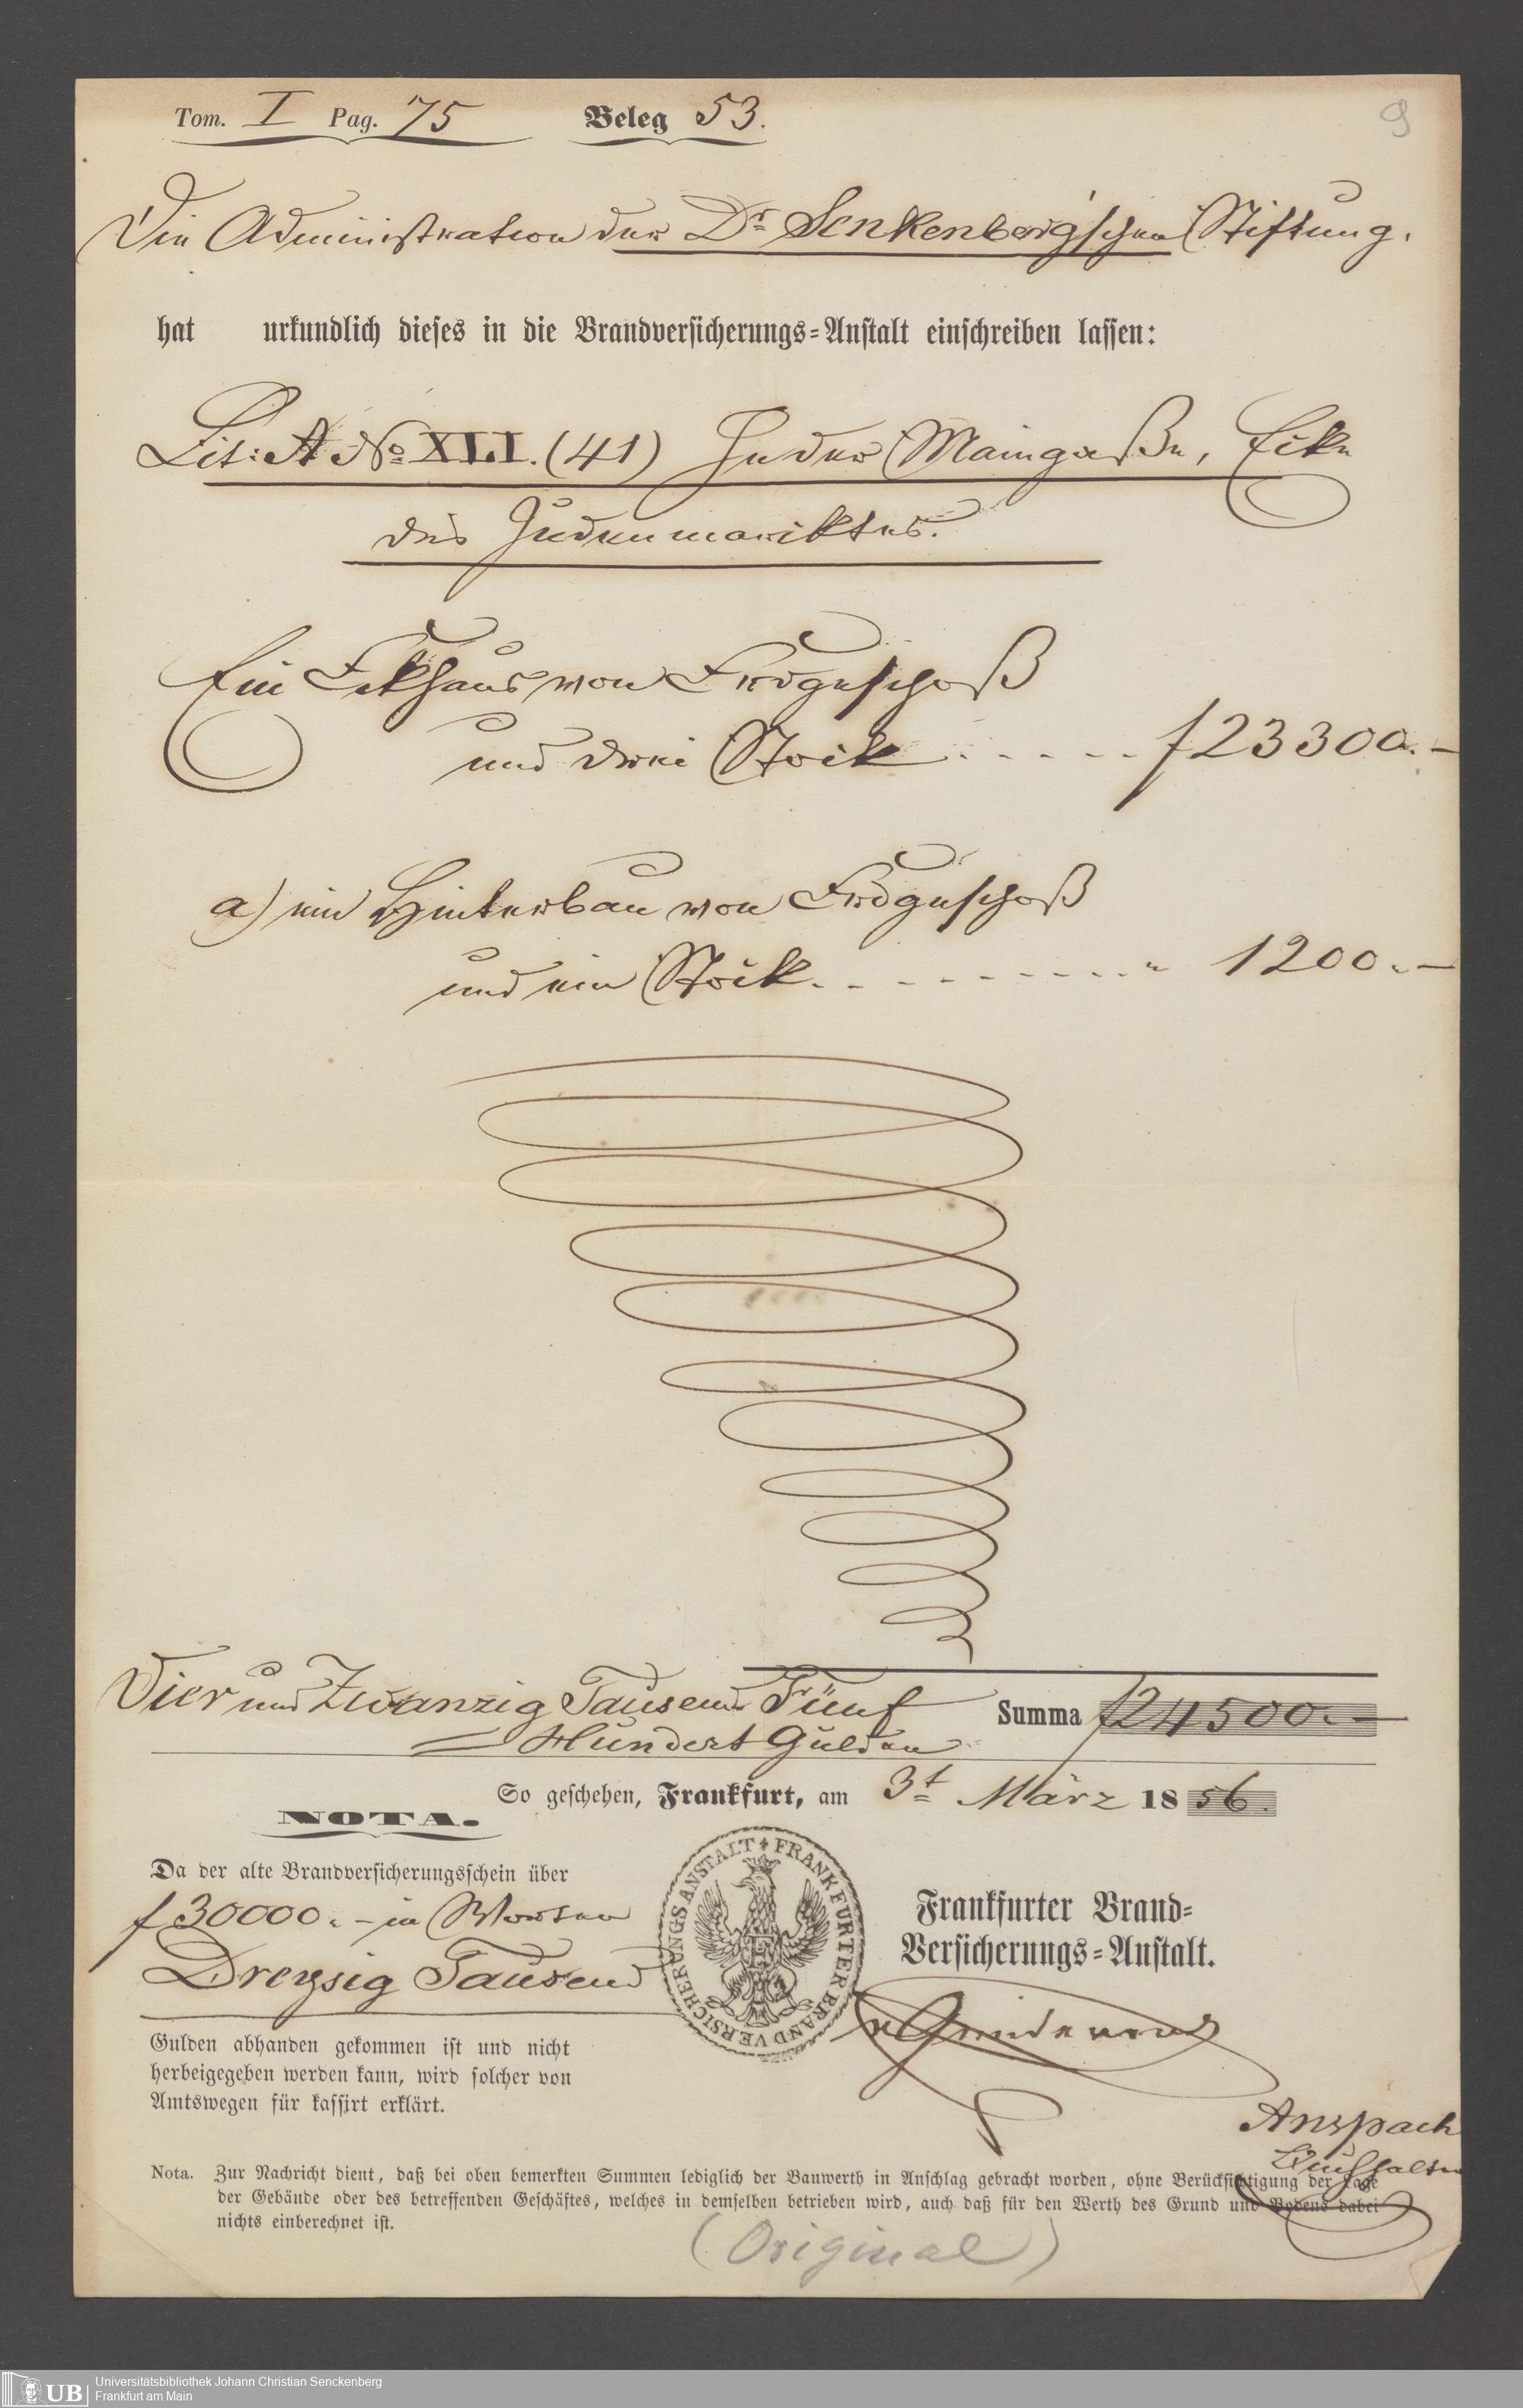 Tom. I Pag. 75 Beleg 53.
9
Die Administration der Dr. Senkenberg'schen Stiftung.
hat urkundlich dieses in die Brandversicherungs-Anstalt einschreiben lassen:
Lit: A No. XLI. (41) In der Maingaße, Ecke
des Judenmarktes.
Ein Eckhaus von Erdgeschoß
und drei Stock . . . . . f 23300. –
a) ein Hinterbau von Erdgeschoß
und ein Stock. . . . . . . . . " 1200. –
Vier und Zwanzig Tausend Fünf
Hundert Gulden
Summa f 24500. –
So geschehen, Frankfurt, am 3t März 1856.
NOTA.
Da der alte Brandversicherungsschein über
f 30000. – in Worten
Dreysig Tausend
Gulden abhanden gekommen ist und nicht
herbeigegeben werden kann, wird solcher von
Amtswegen für kassirt erklärt.
FRANKFURTER BRANDVERSICHERUNGSANSTALT
Frankfurter Brand-
Versicherungs-Anstalt.
Anspach
Buchhalter
Nota. Zur Nachricht dient, daß bei oben bemerkten Summen lediglich der Bauwerth in Anschlag gebracht worden, ohne Berücksichtigung der Lage
der Gebäude oder des betreffenden Geschäftes, welches in demselben betrieben wird, auch daß für den Werth des Grund und Bodens dabei
nichts einberechnet ist.
(Original)
UB
Universitätsbibliothek Johann Christian Senckenberg
Frankfurt am Main